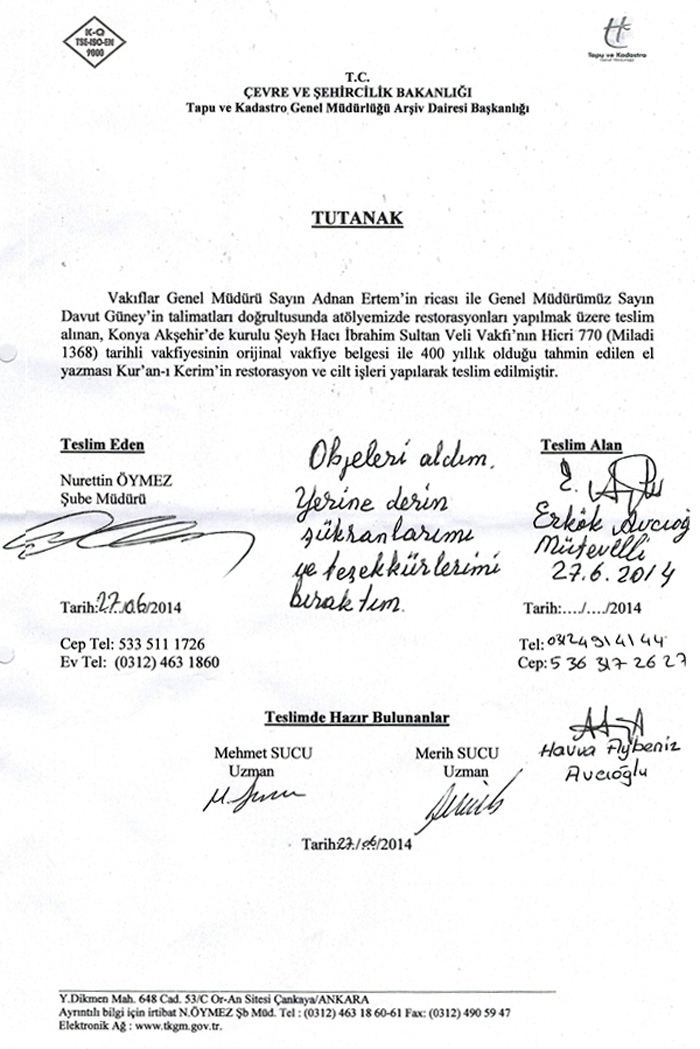 K-Q
TSE-ISO-EN
9000
Tapu ve Kadastro
Genel Müdürlüğü
T.C.
ÇEVRE VE ŞEHİRCİLİK BAKANLIĞI
Tapu ve Kadastro Genel Müdürlüğü Arşiv Dairesi Başkanlığı
TUTANAK
Vakıflar Genel Müdürü Sayın Adnan Ertem'in ricası ile Genel Müdürümüz Sayın
Davut Güney'in talimatları doğrultusunda atölyemizde restorasyonları yapılmak üzere teslim
alınan, Konya Akşehir'de kurulu Şeyh Hacı İbrahim Sultan Veli Vakfı'nın Hicri 770 (Miladi
1368) tarihli vakfiyesinin orijinal vakfiye belgesi ile 400 yıllık olduğu tahmin edilen el
yazması Kur'an-ı Kerim'in restorasyon ve cilt işleri yapılarak teslim edilmiştir.
Teslim Eden
Nurettin ÖYMEZ
Şube Müdürü
Tarih:27/06/2014
Cep Tel: 533 511 1726
Ev Tel: (0312) 463 1860
Objeleri aldım.
Yerine derin
şükranlarımı
ve teşekkürlerimi
bıraktım.
Teslim Alan
Erkök Avcıoğ
Mütevelli
27.6.2014
Tarih:..../..../2014
Tel: 0312 491 41 44
Cep: 5 36 317 26 27
Teslimde Hazır Bulunanlar
Mehmet SUCU
Uzman
Merih SUCU
Uzman
Havva Aybeniz
Avcıoğlu
Tarih:27/06/2014
Y.Dikmen Mah. 648 Cad. 53/C Or-An Sitesi Çankaya/ANKARA
Ayrıntılı bilgi için irtibat N.ÖYMEZ Şb Müd. Tel : (0312) 463 18 60-61 Fax: (0312) 490 59 47
Elektronik Ağ : www.tkgm.gov.tr.